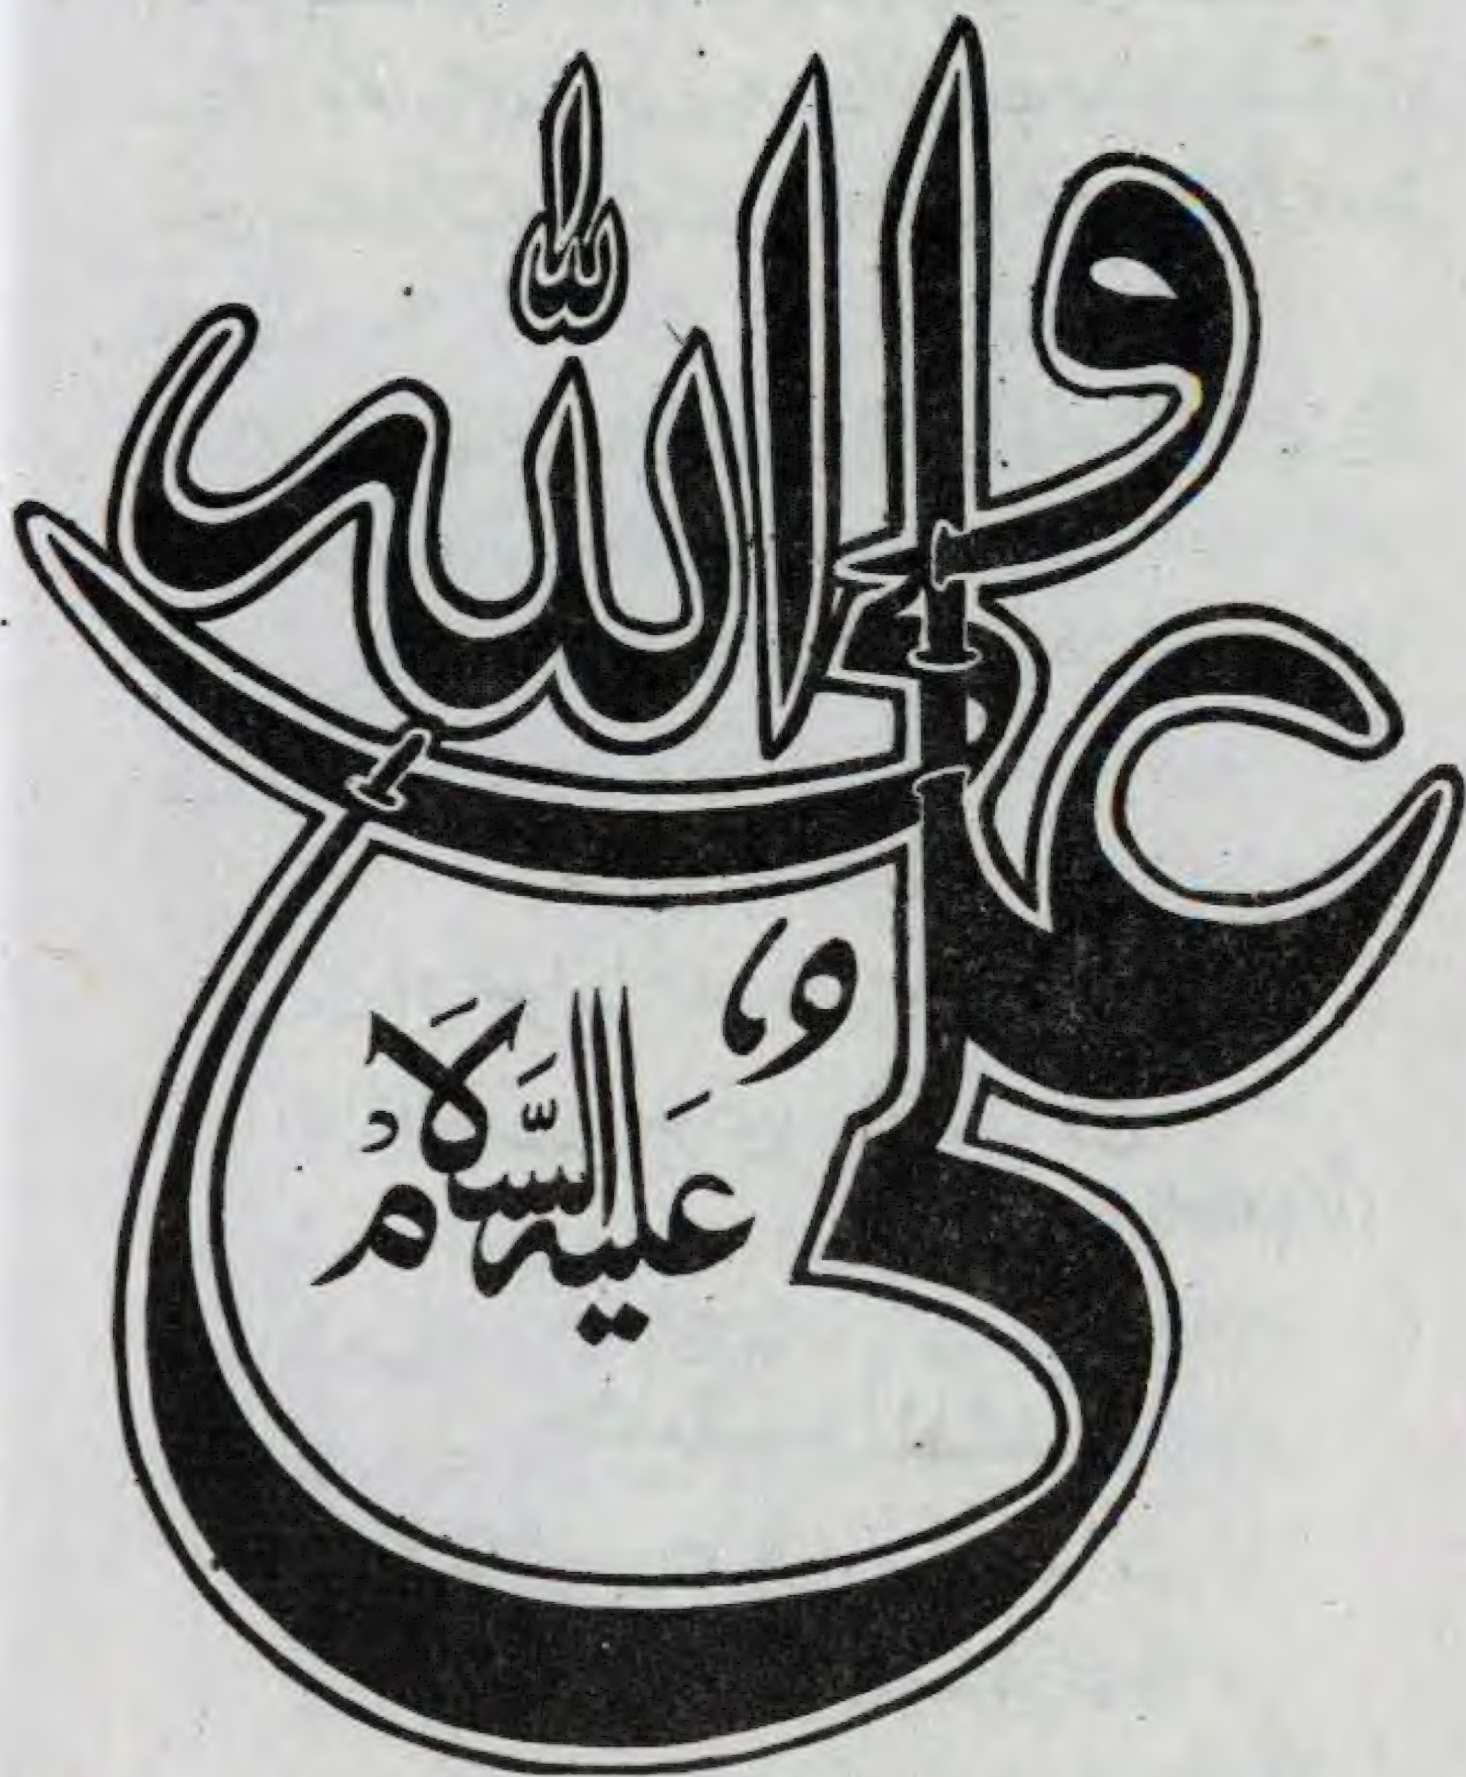 علی ولی الله
و علیه السَّلام